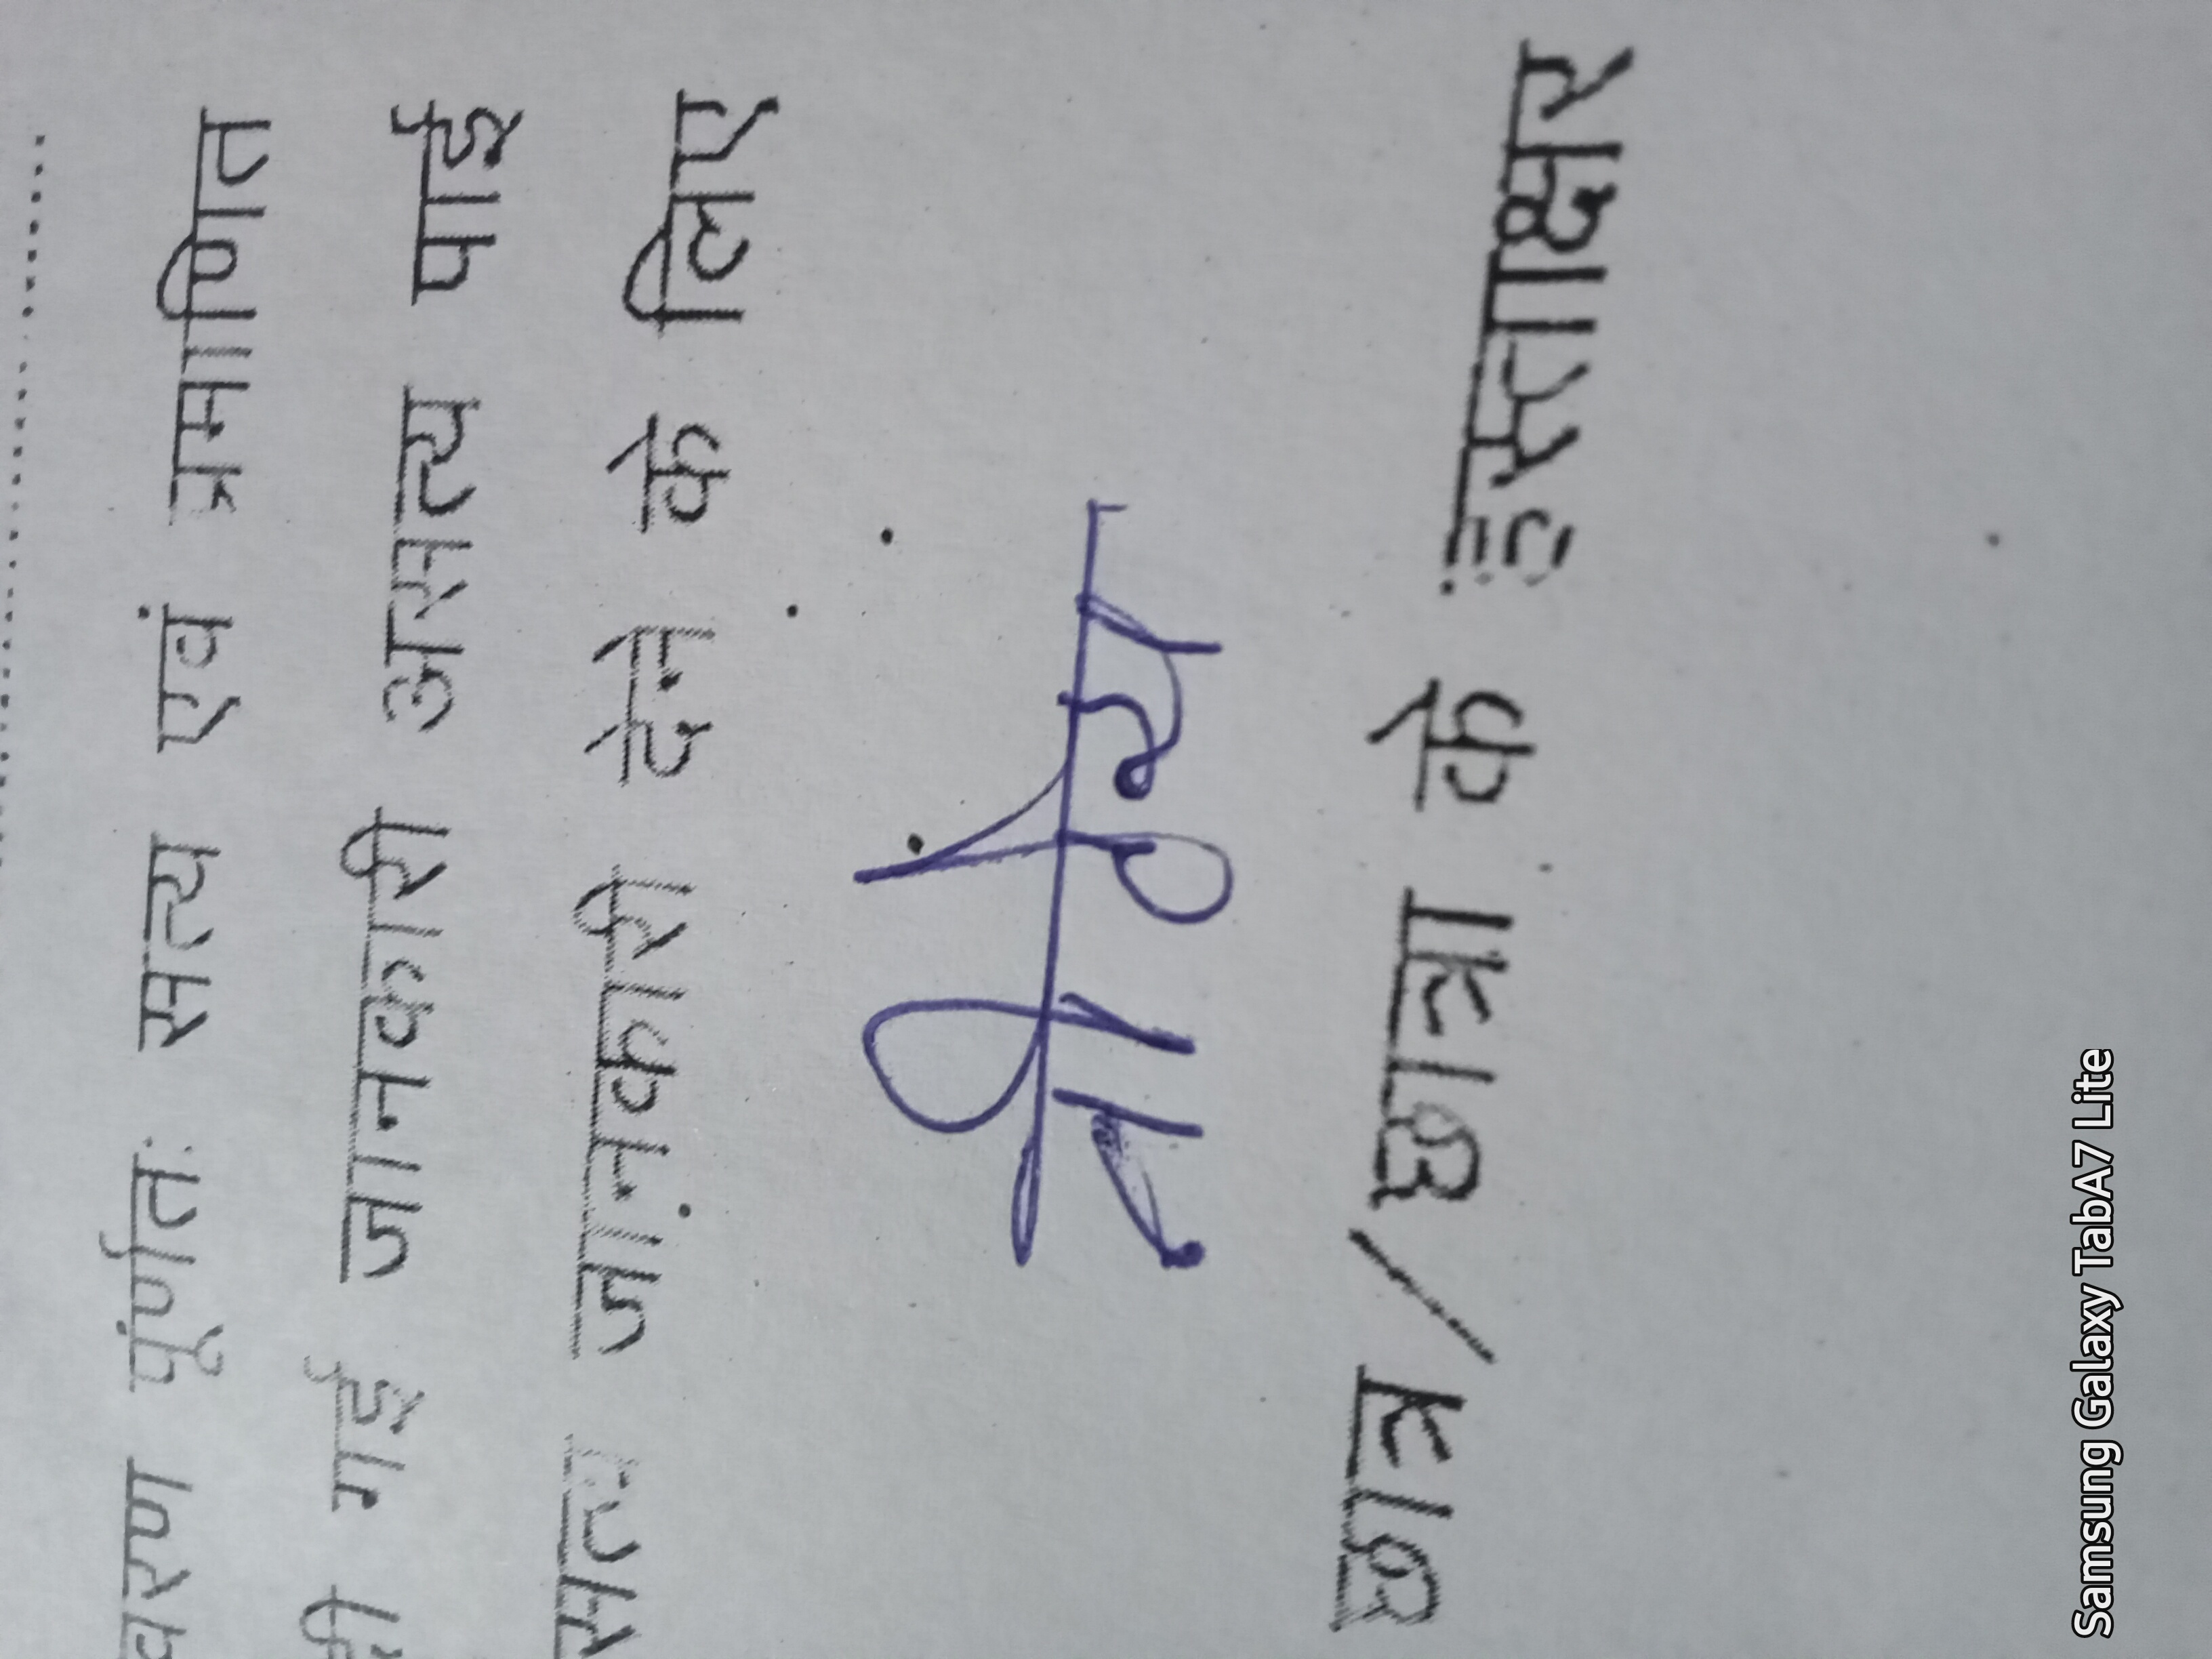 पूर्णतः सत्य एवं प्रमाणित
गई जानकारी असत्य पाई
जानकारी देने के लिए
छात्र/छात्रा के हस्ताक्षर
Samsung Galaxy TabA7 Lite